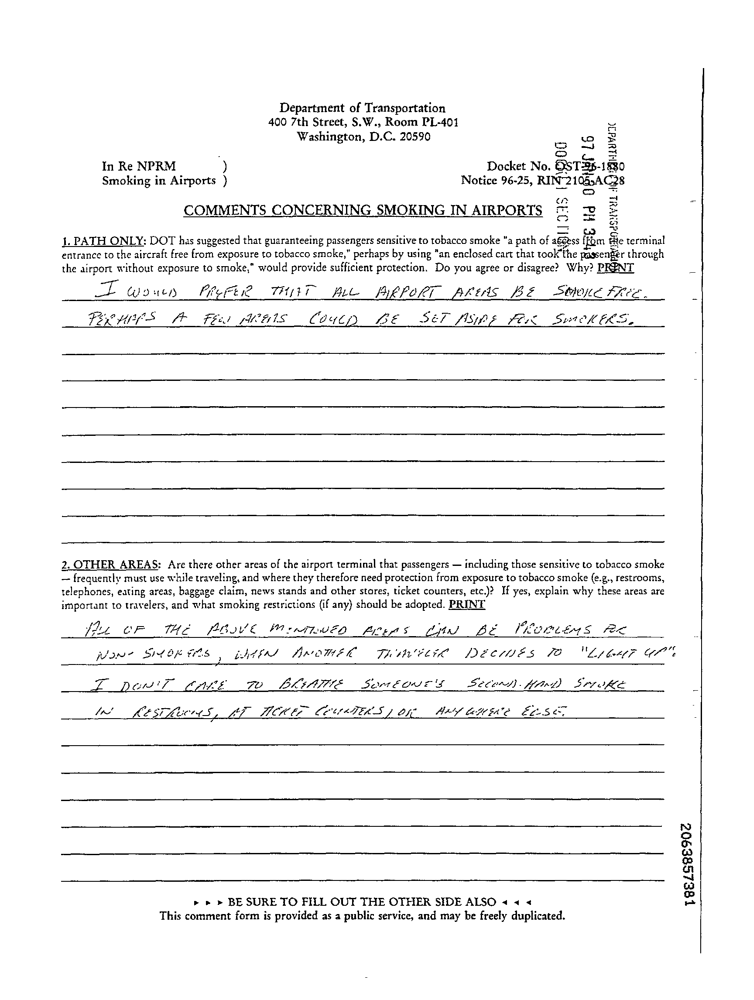 Department of Transportation
400 7th Street, S.W., Room PL-401
Washington, D.C. 20590
In Re NPRM )
Smoking in Airports )
Docket No. OST-96-1880
Notice 96-25, RIN 2105-AC28
COMMENTS CONCERNING SMOKING IN AIRPORTS
1. PATH ONLY: DOT has suggested that guaranteeing passengers sensitive to tobacco smoke "a path of access from the terminal
entrance to the aircraft free from exposure to tobacco smoke," perhaps by using "an enclosed cart that took the passenger through
the airport without exposure to smoke," would provide sufficient protection. Do you agree or disagree? Why? PRINT
I WOULD PREFER THAT ALL AIRPORT AREAS BE SMOKE FREE.
PERHAPS A FEW AREAS COULD BE SET ASIDE FOR SMOKERS.
2. OTHER AREAS: Are there other areas of the airport terminal that passengers — including those sensitive to tobacco smoke
— frequently must use while traveling, and where they therefore need protection from exposure to tobacco smoke (e.g., restrooms,
telephones, eating areas, baggage claim, news stands and other stores, ticket counters, etc.)? If yes, explain why these areas are
important to travelers, and what smoking restrictions (if any) should be adopted. PRINT
ALL OF THE ABOVE MENTIONED AREAS CAN BE PROBLEMS FOR
NON-SMOKERS, WHEN ANOTHER TRAVELER DECIDES TO "LIGHT UP".
I DON'T CARE TO BREATHE SOMEONE'S SECOND-HAND SMOKE
IN RESTROOMS, AT TICKET COUNTERS, OR ANYWHERE ELSE.
► ► ► BE SURE TO FILL OUT THE OTHER SIDE ALSO ◄ ◄ ◄
This comment form is provided as a public service, and may be freely duplicated.
2063857381